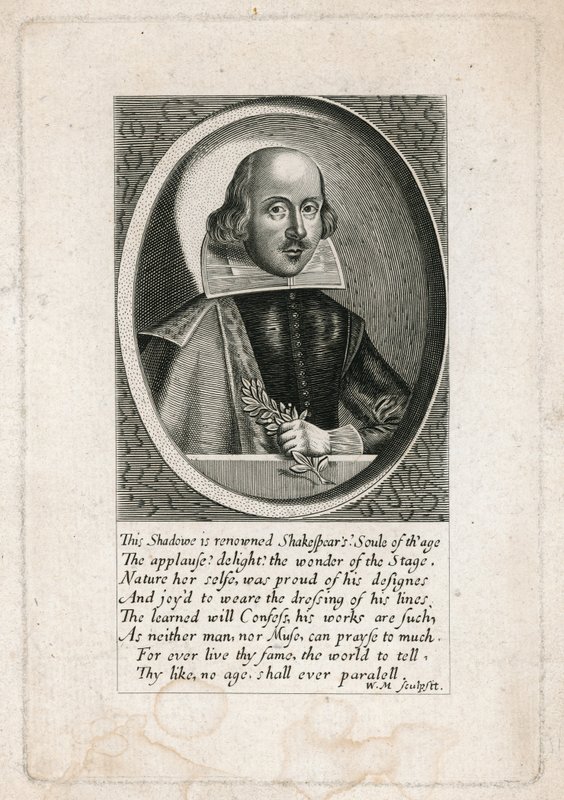 This Shadowe is renowned Shakeſpear's? Soule of th'age
The applauſe? delight? the wonder of the Stage.
Nature her selfe, was proud of his deſignes
And joy'd to weare the dreſsing of his lines,
The learned will Confeſs, his works are ſuch,
As neither man, nor Muſe, can prayse to much.
For ever live thy fame, the world to tell,
Thy like, no age, shall ever paralell.
W.M sculpſtt.